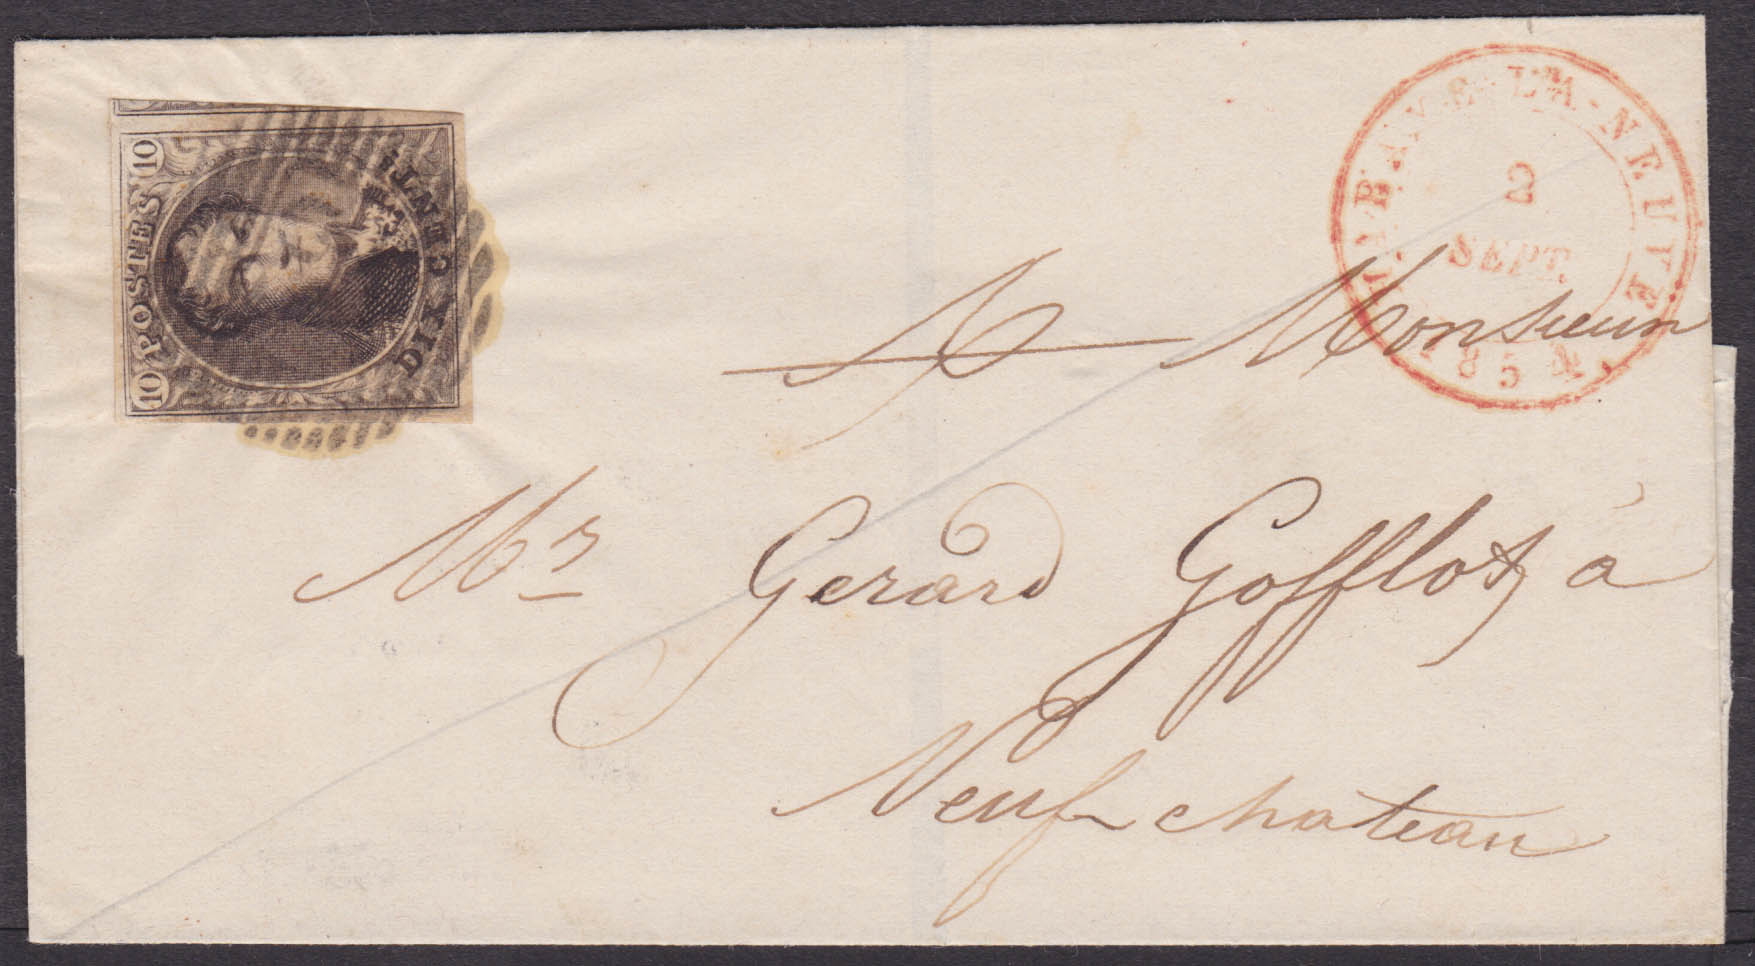 10 POSTES 10
DIX CENTS.
MARBAY-LA-NEUVE
2
SEPT.
1854.
A Monsieur
Mr Gerard Gofflot, à
Neufchateau